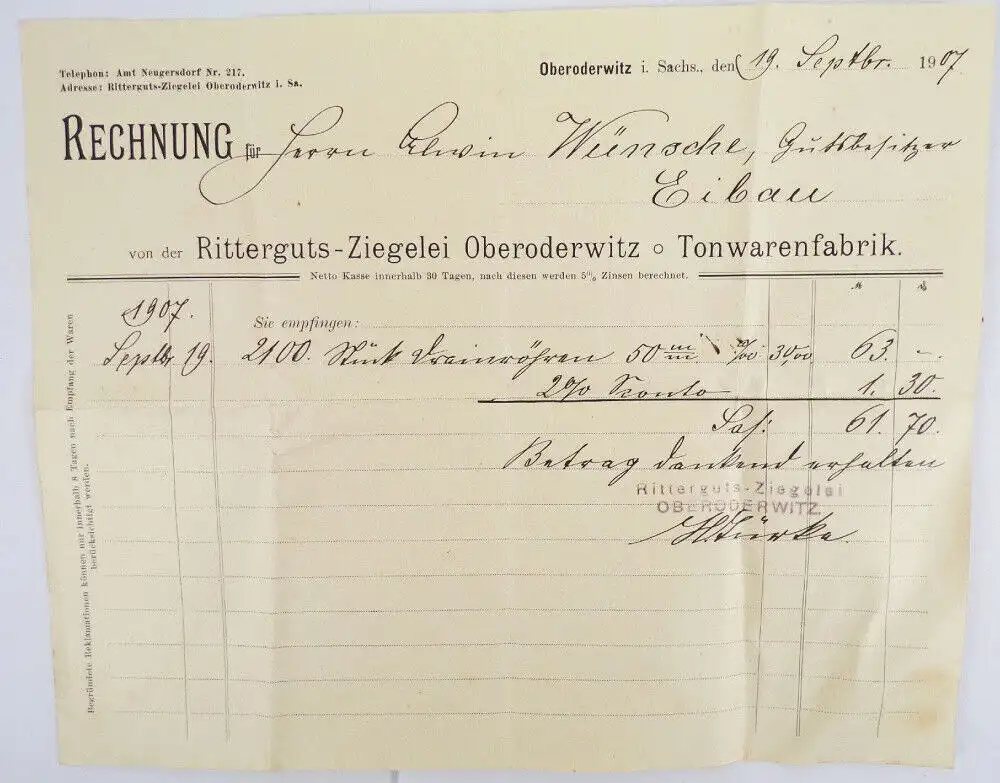 Telephon: Amt Neugersdorf Nr. 217.
Adresse: Ritterguts-Ziegelei Oberoderwitz i. Sa.
Oberoderwitz i. Sachs., den 19. Septbr. 1907.
RECHNUNG für Herrn Alwin Wünsche, Gutsbesitzer
Eibau
von der Ritterguts-Ziegelei Oberoderwitz o Tonwarenfabrik.
Netto Kasse innerhalb 30 Tagen, nach diesen werden 5% Zinsen berechnet.
1907.
Sie empfingen:
Septbr 19. 2100. Stück Drainröhren 50 m/m 30,00 63. -.
2% Sconto 1. 30.
Sa: 61. 70.
Betrag dankend erhalten
Ritterguts-Ziegelei
OBERODERWITZ.
Begründete Reklamationen können nur innerhalb 8 Tagen nach Empfang der Waren
berücksichtigt werden.